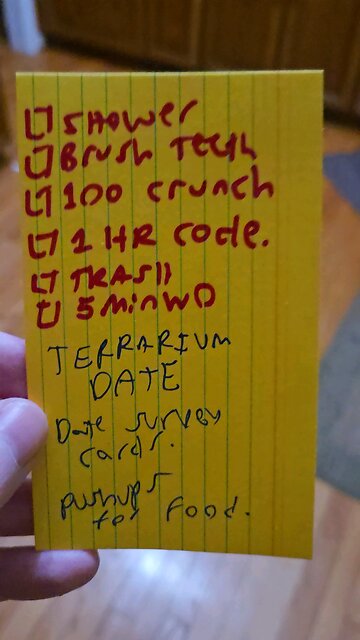 ☐ SHOWER
☐ Brush Teeth
☐ 100 crunch
☐ 1 HR code.
☐ TRASH
☐ 5 MinWO
TERRARIUM
DATE
Date survey
cards.
pushups
for Food.